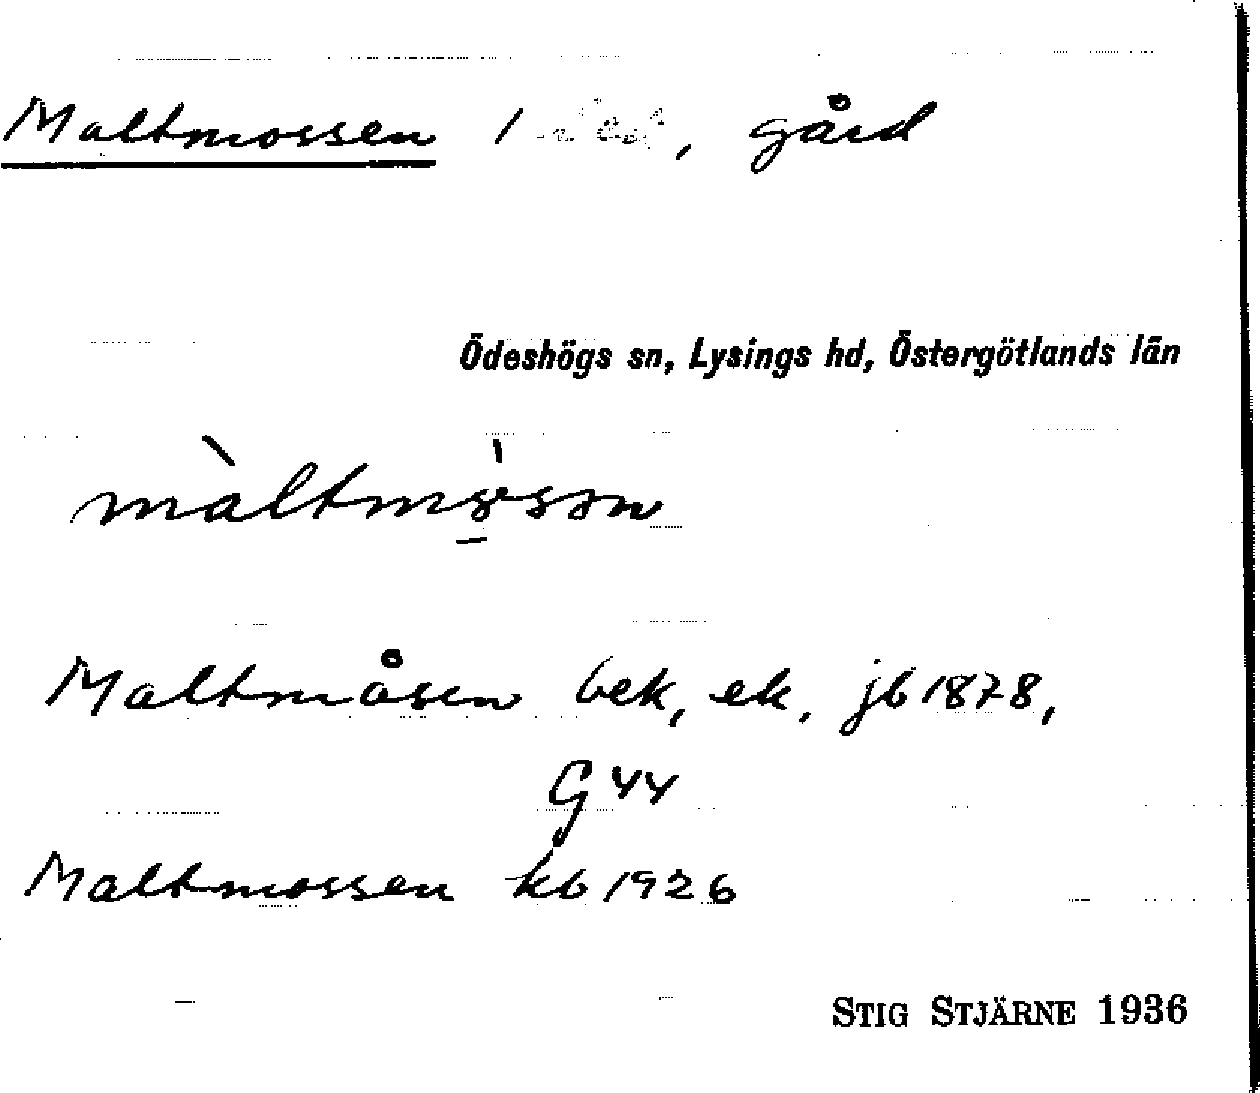 Maltmossen 1 , gård
Ödeshögs sn, Lysings hd, Östergötlands län
Maltmåsen bek, ek. jb 1878,
G44
Maltmossen kb 1926
STIG STJÄRNE 1936